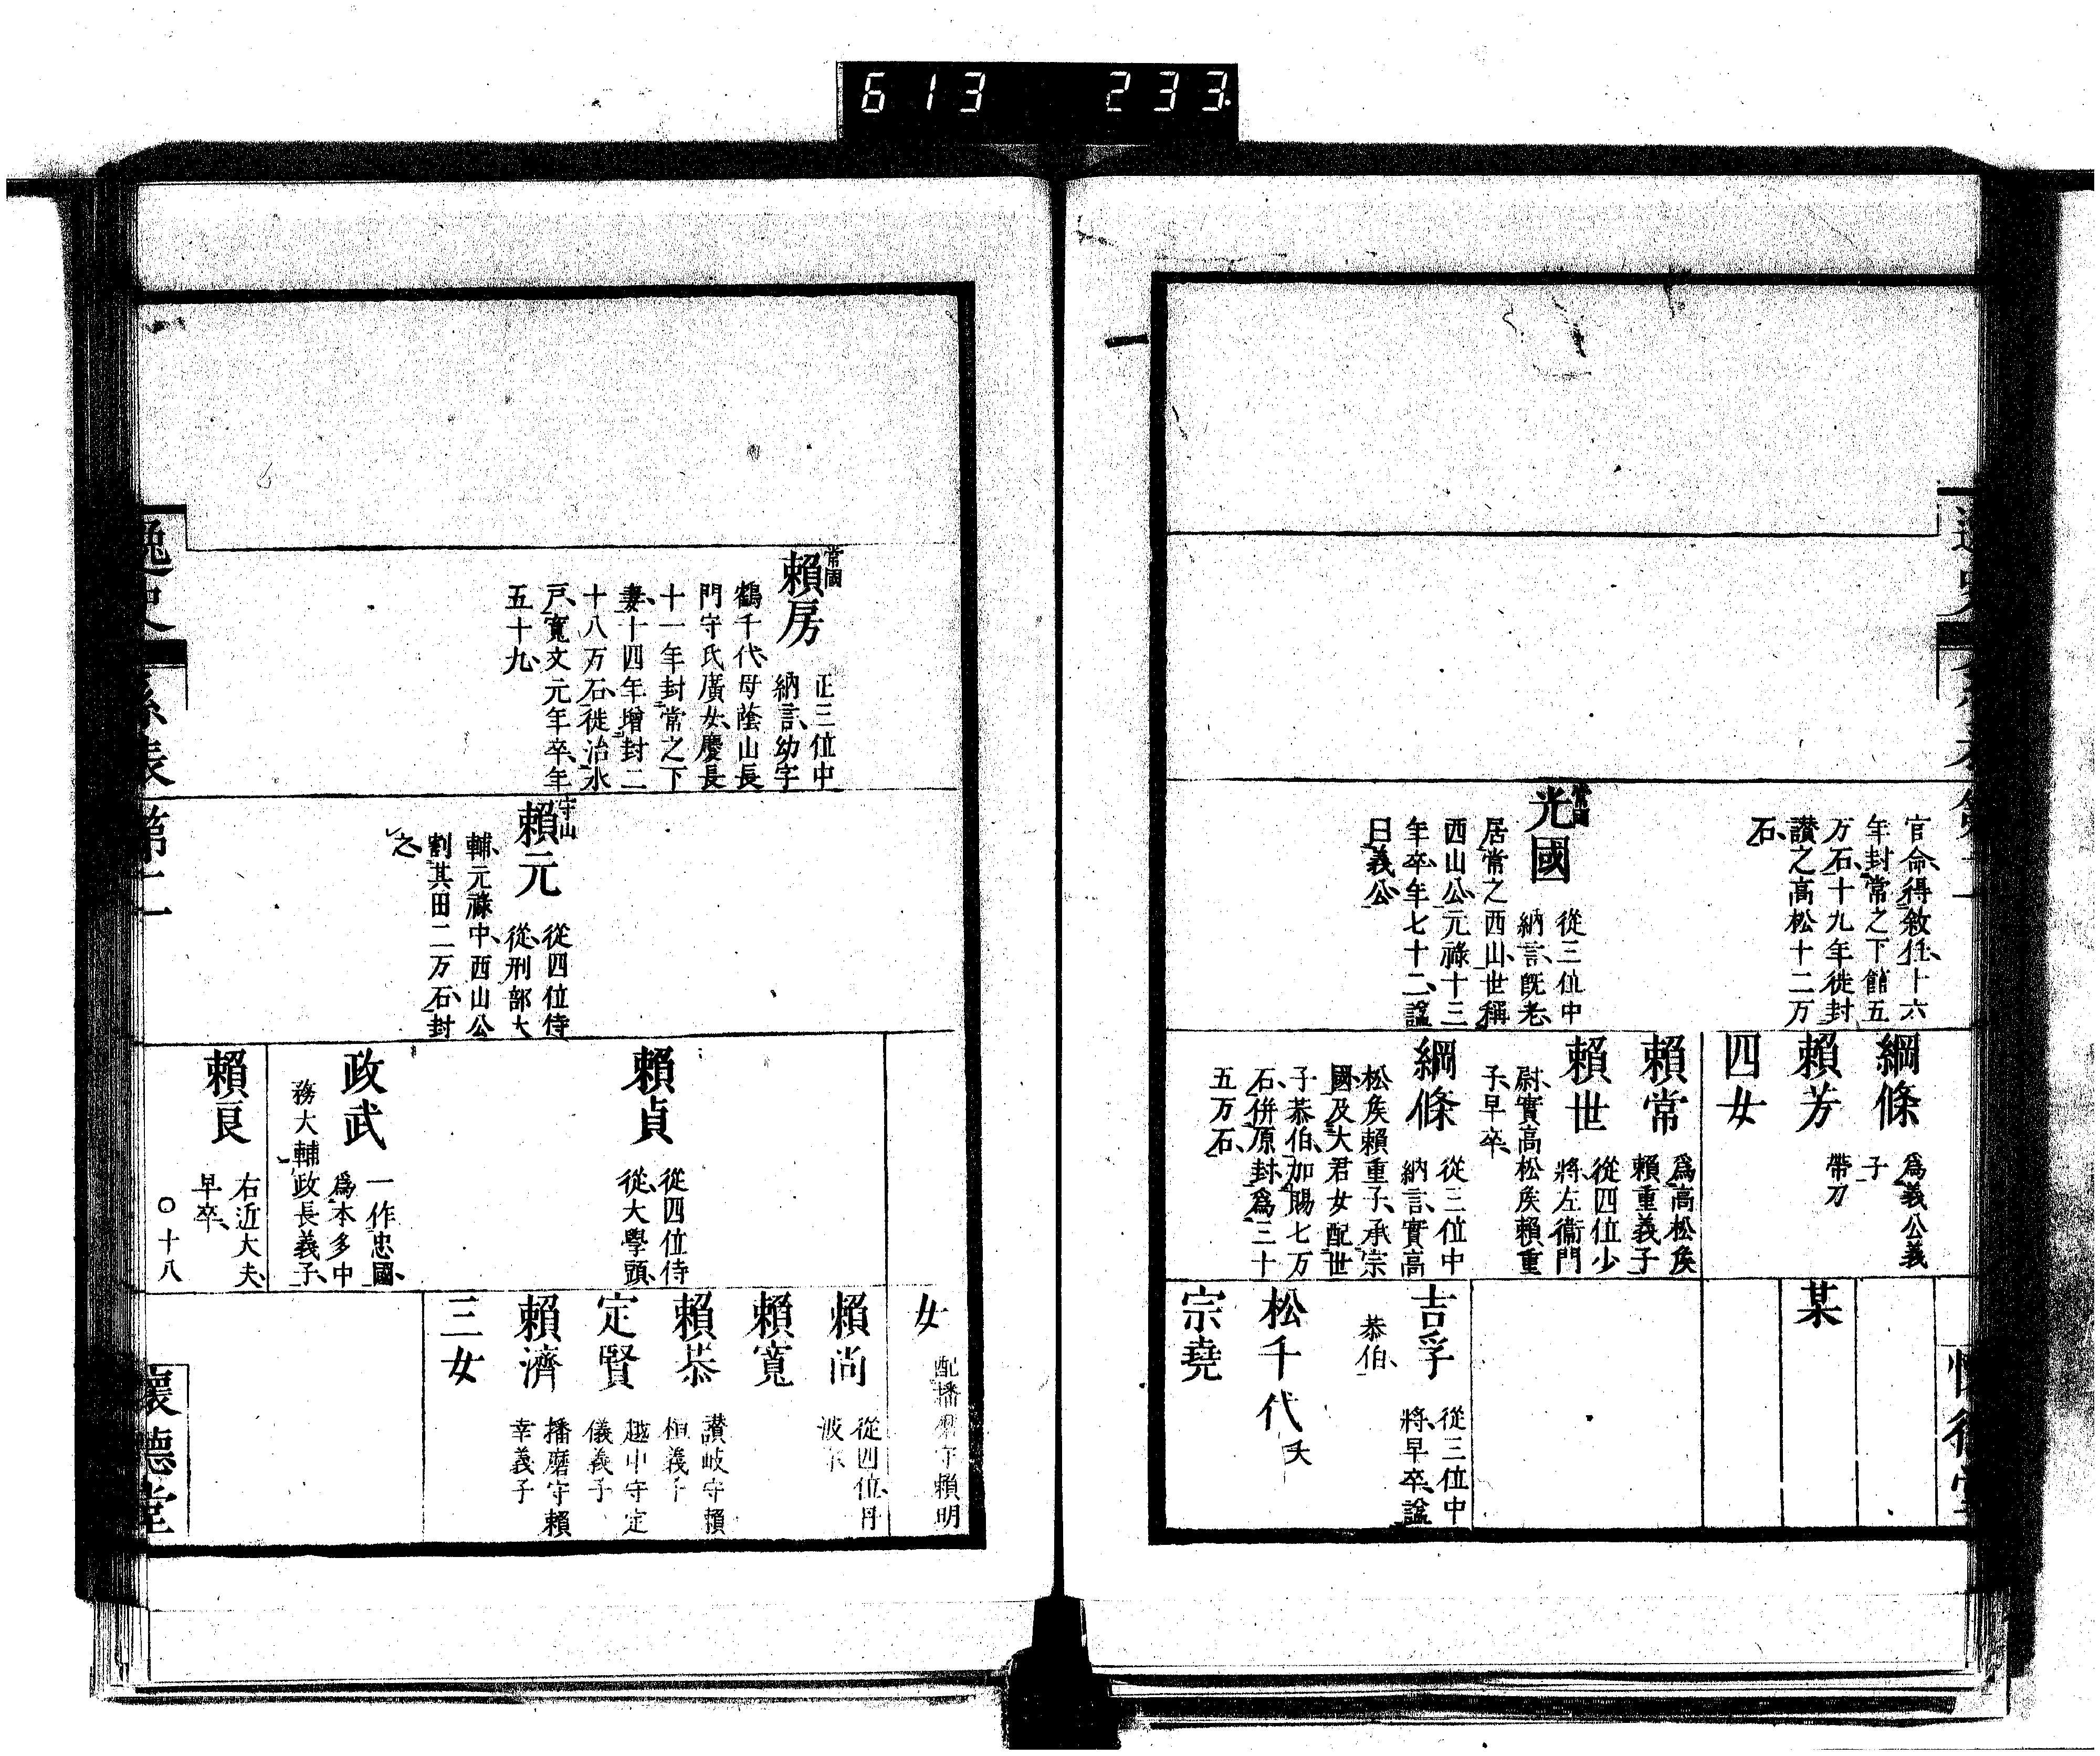 613 233
官命得敘任十六
年封常之下館五
万石十九年徙封
讃之高松十二万
石
光國
從三位中
納言既老
居常之西山世稱
西山公元祿十三
年卒年七十二謚
曰義公
綱條
爲義公義
子
賴芳
帶刀
四女
賴常
爲高松矦
賴重義子
賴世
從四位少
將左衞門
尉實高松矦賴重
子早卒
綱條
從三位中
納言實高
松矦賴重子承宗
國及大君女配世
子恭伯加賜七万
石併原封爲三十
五万石
某
吉孚
從三位中
將早卒謚
恭伯
松千代
夭
宗堯
常國
賴房
正三位中
納言幼字
鶴千代母蔭山長
門守氏廣女慶長
十一年封常之下
妻十四年增封二
十八万石徙治水
戸寬文元年卒年
五十九
守山
賴元
從四位侍
從刑部大
輔元祿中西山公
割其田二万石封
之
賴貞
從四位侍
從大學頭
政武
一作忠國
爲本多中
務大輔政長義子
賴良
右近大夫
早卒
女
配播磨守賴明
賴尚
從四位丹
波守
賴寬
賴恭
讃岐守賴
桓義子
定賢
越中守定
儀義子
賴濟
播磨守賴
幸義子
三女
逸史
系表第十一
十八
懷德堂